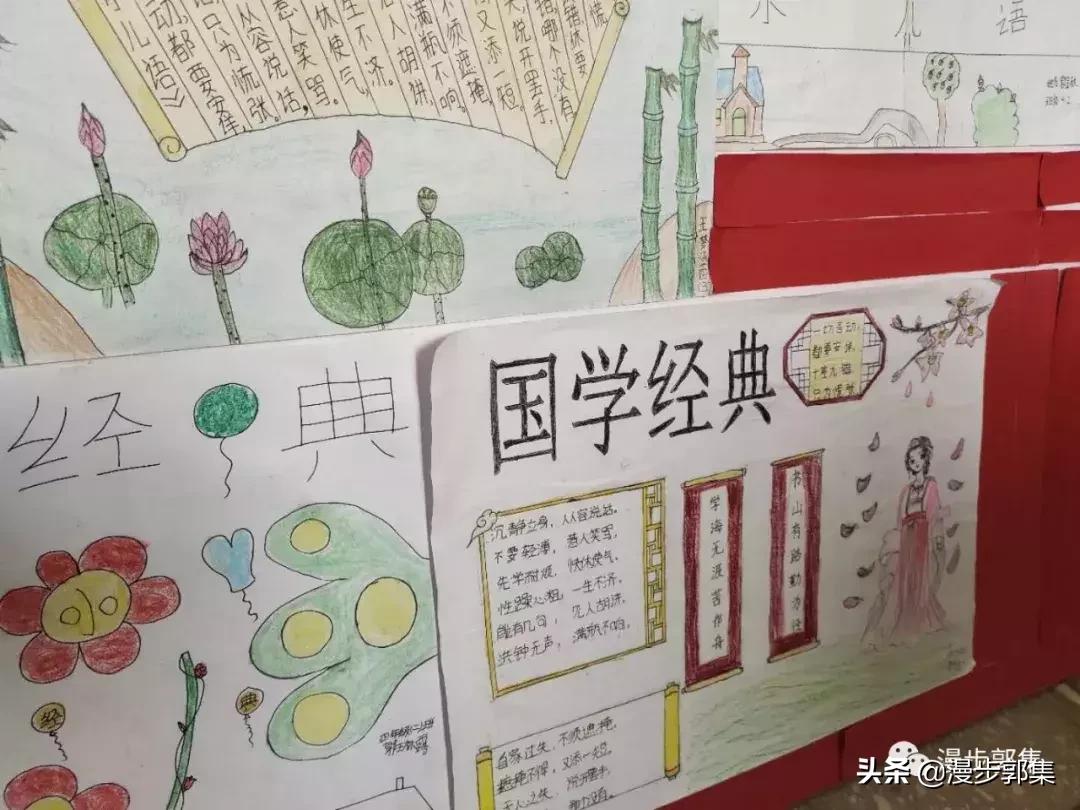 小儿语》
动,都要安徐,
话,只为慌张。
从容说话,
惹人笑骂。
休使气,
生不济。
人胡饼,
满瓶不响。
不须遮掩,
又添一短。
说开罢手,
那个没有。
休要
语
经典
国学经典
一切言动,
都要安徐,
十差九错
只为慌张
沉静立身,从容说话。
不要轻薄,惹人笑骂,
先学耐烦,快休使气。
性躁心粗,一生不济。
能有几句,见人胡
洪钟无声,满瓶不响。
学海无涯苦作舟
书山有路勤为径
经
典
自家过失,不须遮掩,
遮掩不得,又添一短。
无心之失,说开罢手,
那个没有。
漫步郭集
头条@漫步郭集